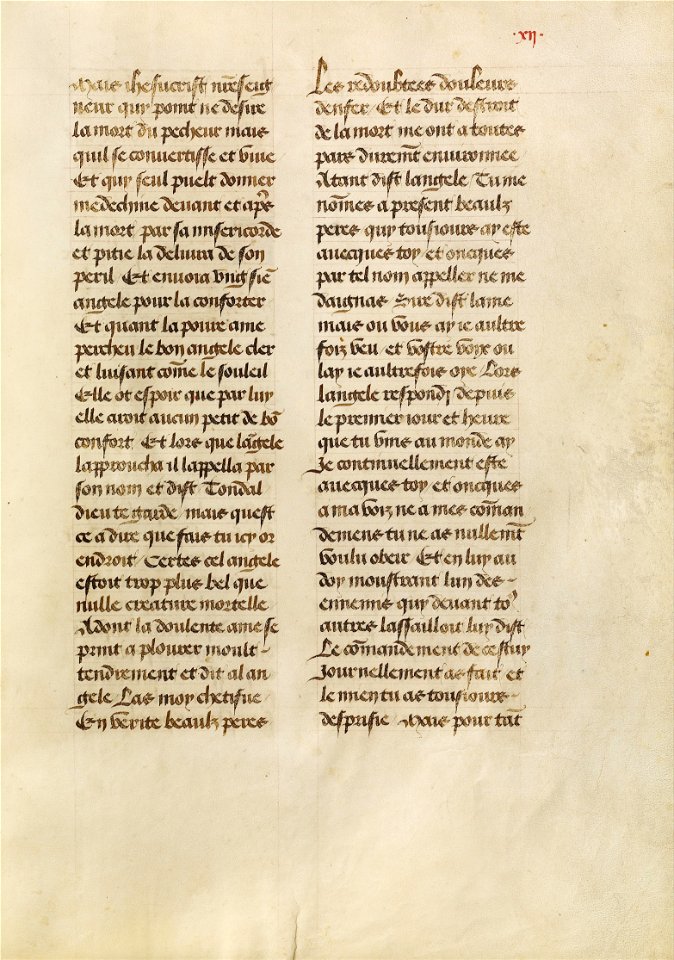 ·xii·
Mais ihesucrist nr̄e seig
neur quy point ne desire
la mort du pecheur mais
quil se conuertisse et viue
Et quy seul puelt donner
medechine deuant et apr̄s
la mort par sa misericorde
et pitie la deliura de son
peril Et enuoia vng siē
angele pour la conforter
Et quant la poure ame
percheu le bon angele cler
et luisant com̄e le souleil
Elle ot espoir que par luy
elle aroit aucun petit de bō
confort Et lors que lāgele
lapproucha il lappella par
son nom et dist Tondal
dieu te garde mais quest
ce a dire que fais tu icy or
endroit Certes cel angele
estoit trop plus bel que
nulle creature mortelle
Adont la doulente ame se
print a plourer moult -
tendrement et dit al an
gele Las moy chetifue
En verite beaulz peres
Les redoubtees douleurs
denfer Et le dur destroit
de la mort me ont a toutes
pars durem̄t enuironnee
Atant dist langele Tu me
nōmes a present beaulz
peres quy tousiours ay este
auecques toy et oncques
par tel nom appeller ne me
daignas Sire dist lame
mais ou vous ay ie aultre
foiz veu et vostre voix ou
lay ie aultrefois oye Lors
langele respondi depuis
le premier iour et heure
que tu vins au monde ay
Je continuellement este
auecques toy et oncques
a ma voiz ne a mes com̄an
demens tu ne as nullem̄t
voulu obeir Et en luy au
doy moustrant lun des -
ennemis quy deuant to9
autres lassailloit luy dist
Le com̄andement de cestuy
Journellement as fait et
le mien tu as tousiours -
desprisie Mais pour tāt